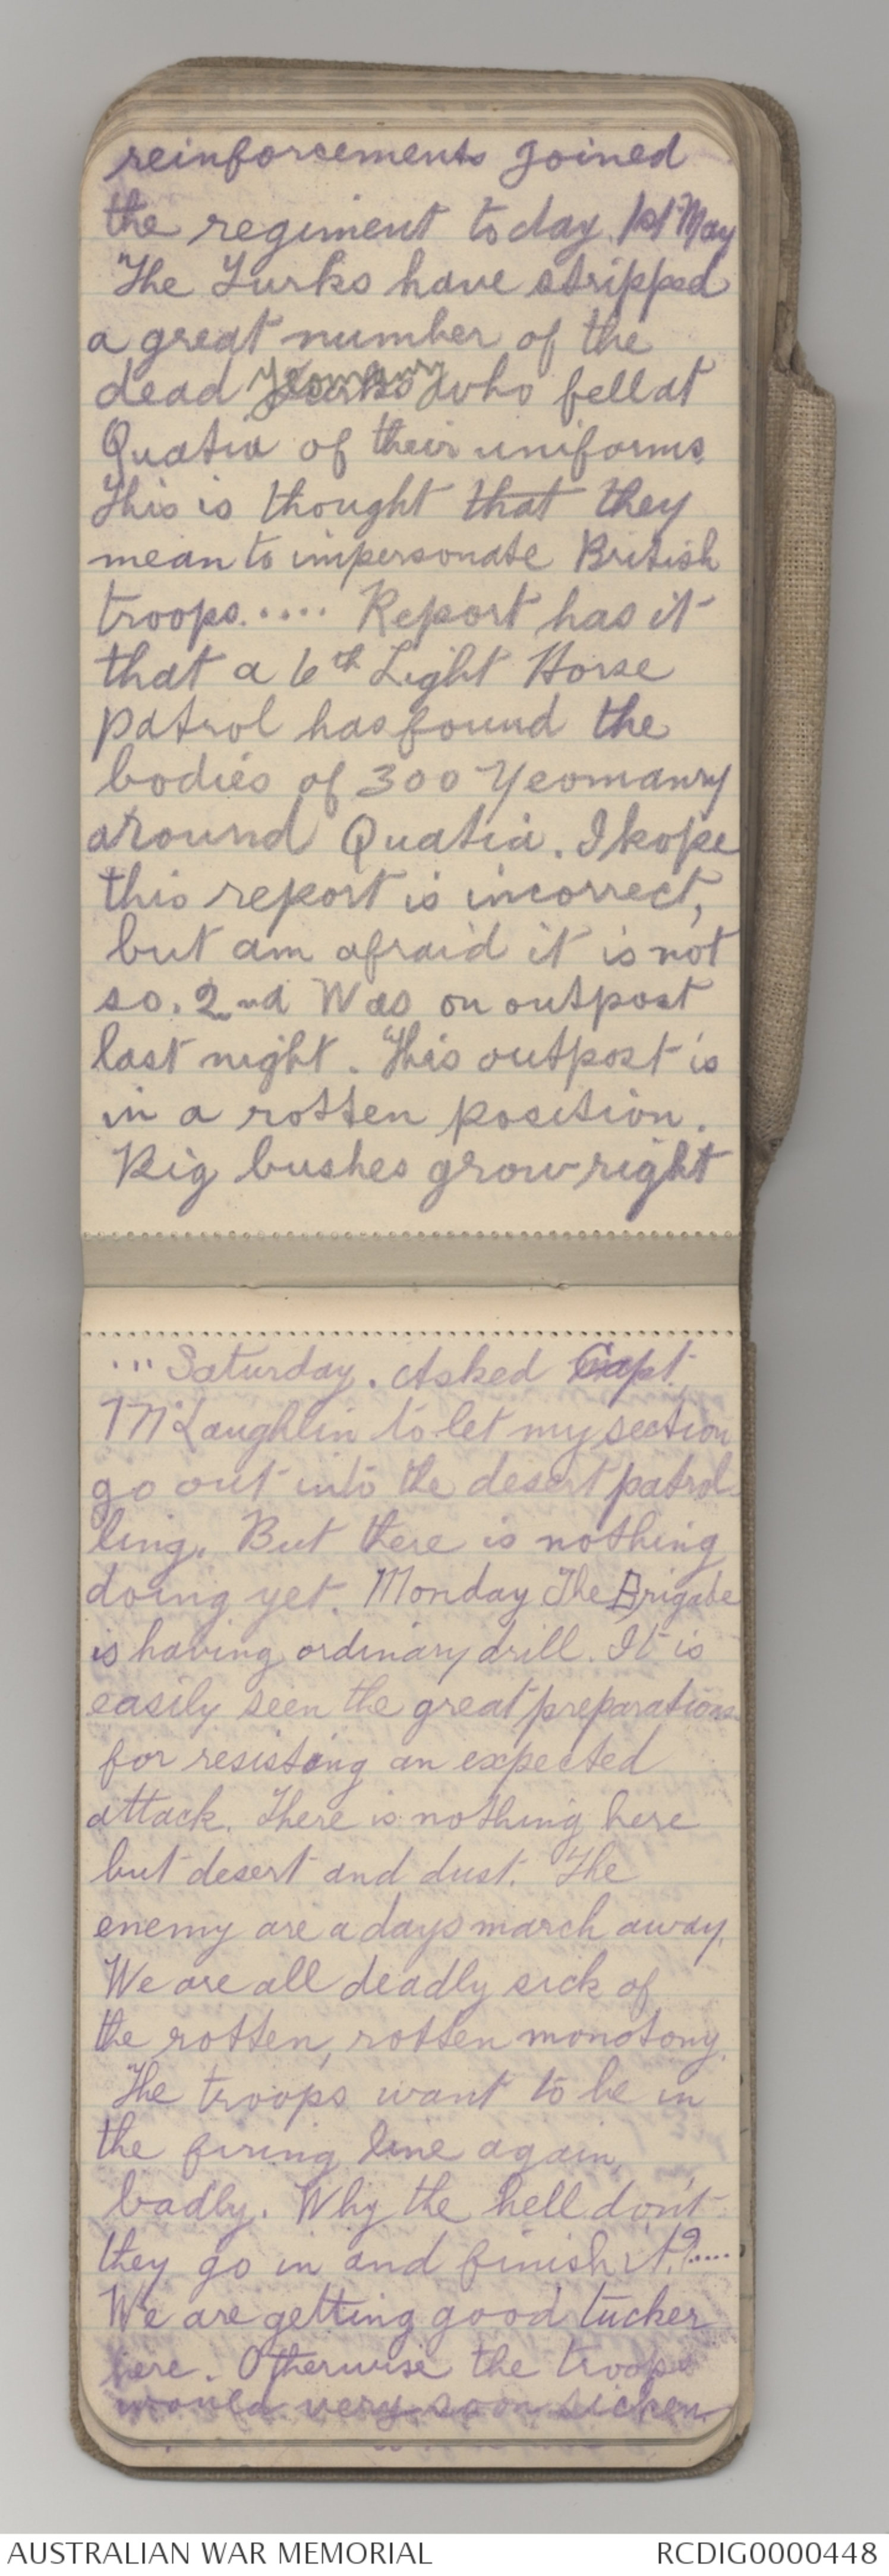 reinforcements joined
the regiment today. 1st May
The Turks have stripped
a great number of the
dead Yeomanry who fell at
Quatia of their uniforms.
This is thought that they
mean to impersonate British
troops..... Report has it
that a 6th Light Horse
patrol has found the
bodies of 300 Yeomanry
around Quatia. I hope
this report is incorrect,
but am afraid it is not
so. 2nd Was on outpost
last night. This outpost is
in a rotten position.
Big bushes grow right
... Saturday. Asked Capt.
McLaughlin to let my section
go out into the desert patrol-
ling. But there is nothing
doing yet. Monday The Brigade
is having ordinary drill. It is
easily seen the great preparations
for resisting an expected
attack. There is nothing here
but desert and dust. The
enemy are a days march away.
We are all deadly sick of
the rotten, rotten monotony.
The troops want to be in
the firing line again
badly. Why the hell don't
they go in and finish it?.....
We are getting good tucker
here. Otherwise the troops
would very soon sicken
AUSTRALIAN WAR MEMORIAL
RCDIG0000448